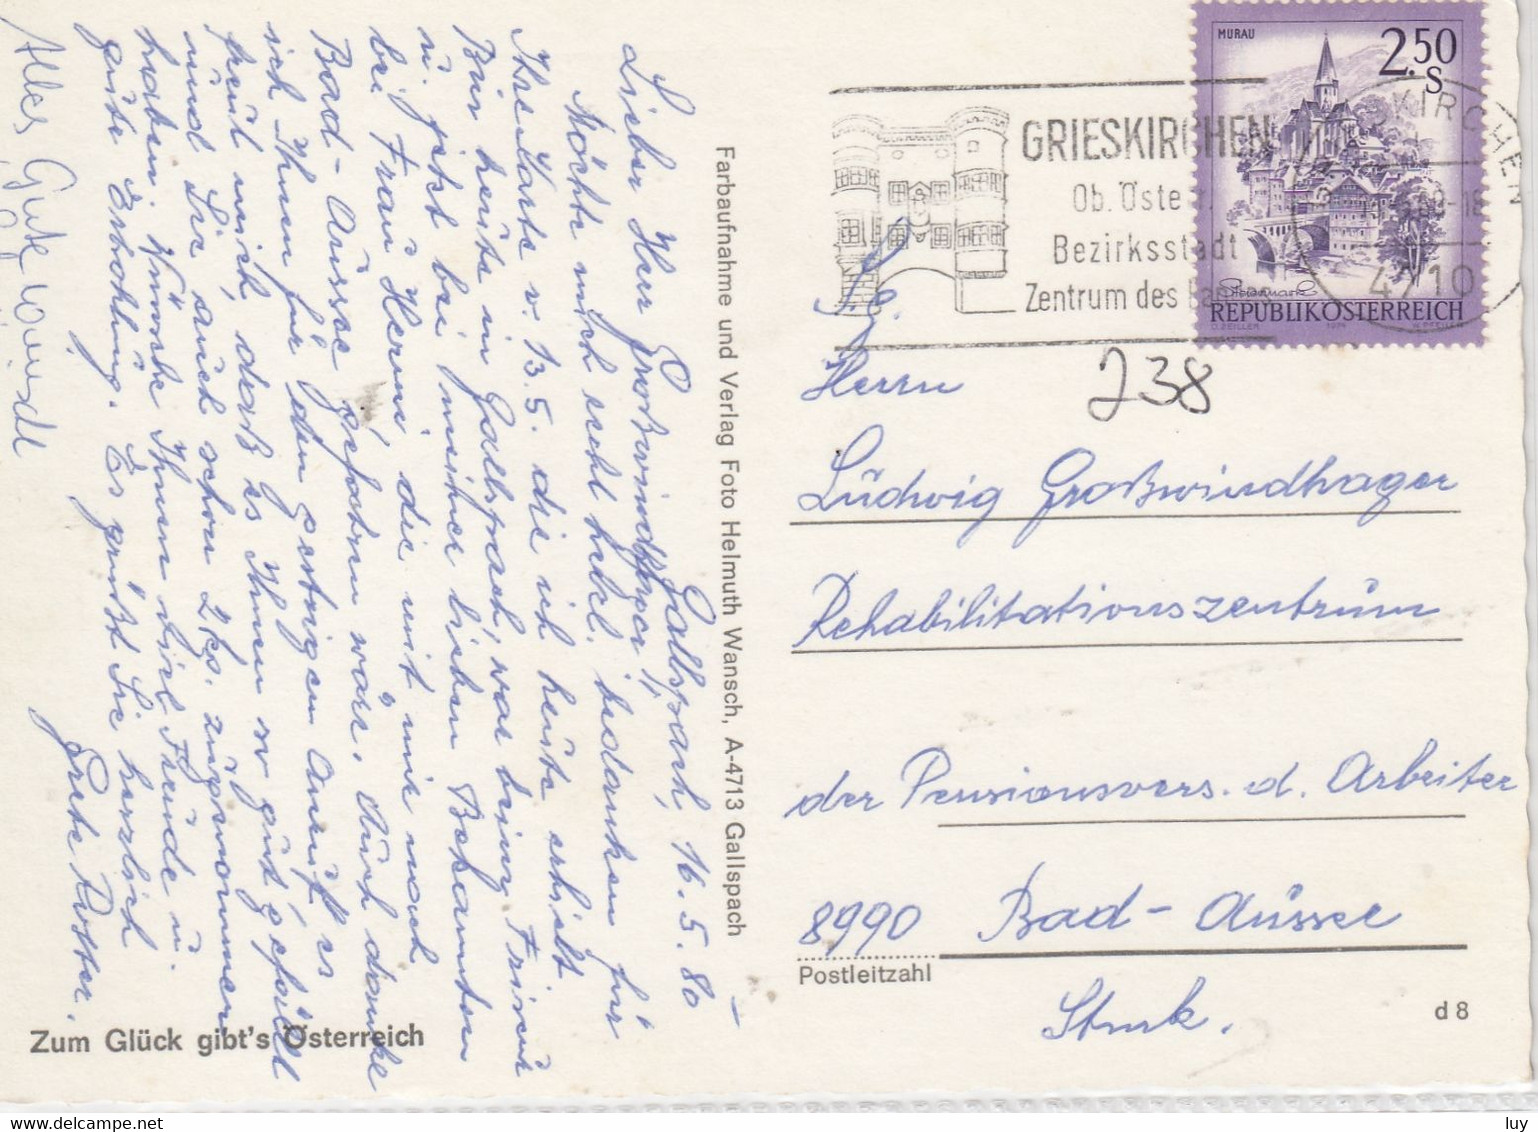 Gallspach, 16.5.80
Lieber Herr Großwindhager!
Möchte mich recht herzl. bedanken für
Ihre Karte v. 13.5. die ich heute erhielt.
Bin heute in Gallspach, war beim Friseur
u. jetzt bei meiner lieben Bekannten
bei Frau Hermi, die mit mir nach
Bad-Aussee gefahren wäre. Auch danke
ich Ihnen für den gestrigen Anruf es
freut mich, daß es Ihnen so gut gefällt
und Sie auch schon 2 kg. zugenommen
haben. Wünsche Ihnen viel Freude u.
gute Erholung. Es grüßt Sie herzlich
Grete
Alles Gute wünscht
Zum Glück gibt's Österreich
Farbaufnahme und Verlag Foto Helmuth Wansch, A-4713 Gallspach
GRIESKIRCHEN
Ob. Öster.
Bezirksstadt
Zentrum des
KIRCHEN
4710
MURAU
2.50
S
Steiermark
REPUBLIK ÖSTERREICH
O. ZEILLER 1974 W. PFEILER
238
Herrn
Ludwig Großwindhager
Rehabilitationszentrum
der Pensionsvers. d. Arbeiter
8990 Bad-Aussee
Postleitzahl
Stmk.
d 8
luy